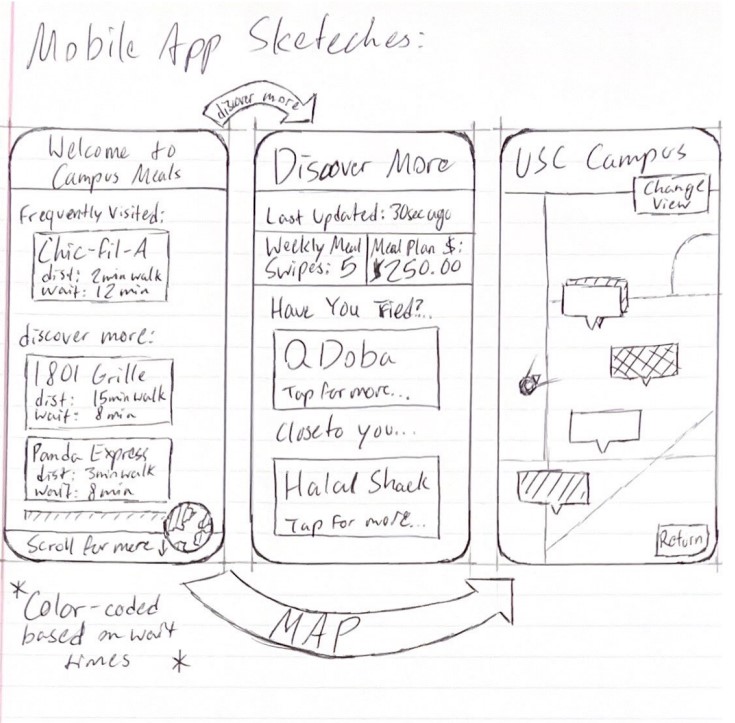 Mobile App Sketeches:
discover more
Welcome to
Campus Meals
Frequently Visited:
Chic-fil-A
dist: 2min walk
wait: 12 min
discover more:
1801 Grille
dist: 15min walk
wait: 8min
Panda Express
dist: 3minwalk
wait: 8min
Scroll for more ↓
Discover More
Last Updated: 30sec ago
Weekly Meal
Swipes: 5
Meal Plan $:
$250.00
Have You Tried?..
QDoba
Tap for more...
Close to you...
Halal Shack
Tap For more...
USC Campus
Change
View
Return
MAP
*Color-coded
based on wait
times *